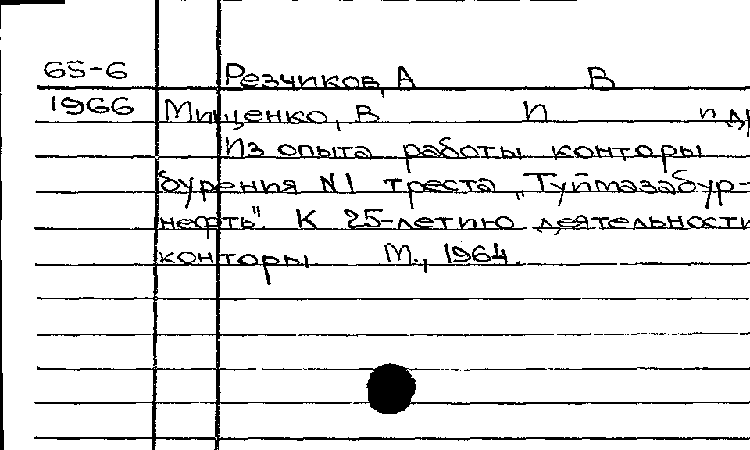 65-6 Резчиков, А В
1966 Мищенко, В П и др
Из опыта работы конторы
бурения N1 треста „Туймазабур-
нефть". К 25-летию деятельности
конторы М., 1964.